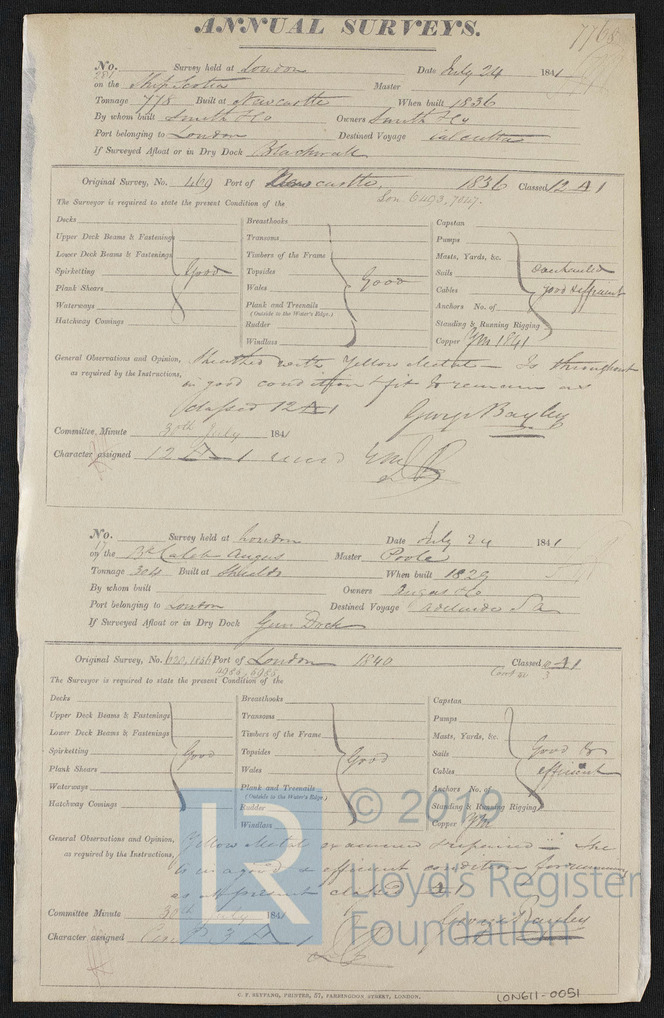 ANNUAL SURVEYS.
7768
No. 281 Survey held at London Date July 24 1841
on the Ship Scotia Master
Tonnage 778 Built at Newcastle When built 1836
By whom built Smith & Co Owners Smith & Co
Port belonging to London Destined Voyage Calcutta
If Surveyed Afloat or in Dry Dock Blackwall
Original Survey, No. 469 Port of Newcastle 1836 Classed 12 A 1
Lon 6493, 7047.
The Surveyor is required to state the present Condition of the
Decks
Upper Deck Beams & Fastenings
Lower Deck Beams & Fastenings
Spirketting
Plank Shears
Waterways
Hatchway Comings
Good
Breasthooks
Transoms
Timbers of the Frame
Topsides
Wales
Plank and Treenails
(Outside to the Water's Edge.)
Rudder
Windlass
Good
Capstan
Pumps
Masts, Yards, &c.
Sails
Cables
Anchors No. of
Standing & Running Rigging
Copper YM 1841
overhauled
good & efficient
General Observations and Opinion, Sheathed with Yellow Metal - Is throughout
as required by the Instructions, in good condition & fit to remain as
classed 12 A 1
George Bayley
Committee, Minute 30th July 1841
Character assigned 12 A 1
No. 17 Survey held at London Date July 24 1841
on the Bk Caleb Angus Master Poole
Tonnage 304 Built at Shields When built 1829
By whom built Owners Angas & Co
Port belonging to London Destined Voyage Adelaide S A
If Surveyed Afloat or in Dry Dock Gun Dock
Original Survey, No. Port of London 1840 Classed
4985, 5985
Cont
3
The Surveyor is required to state the present Condition of the
Decks
Upper Deck Beams & Fastenings
Lower Deck Beams & Fastenings
Spirketting
Plank Shears
Waterways
Hatchway Comings
Good
Breasthooks
Transoms
Timbers of the Frame
Topsides
Wales
Plank and Treenails
(Outside to the Water's Edge.)
Rudder
Windlass
Good
Capstan
Pumps
Masts, Yards, &c.
Sails
Cables
Anchors No. of
Standing & Running Rigging
Copper YM
Good &
efficient
General Observations and Opinion, Yellow Metal examined & repaired - She
as required by the Instructions, is in a good & efficient condition for remaining
as at present classed
George Bayley
Committee Minute 30th July 1841
Character assigned Cont 3 A 1
LR
© 2019
Lloyd's Register
Foundation
C. F. SEYFANG, PRINTER, 57, FARRINGDON STREET, LONDON.
LON611-0051